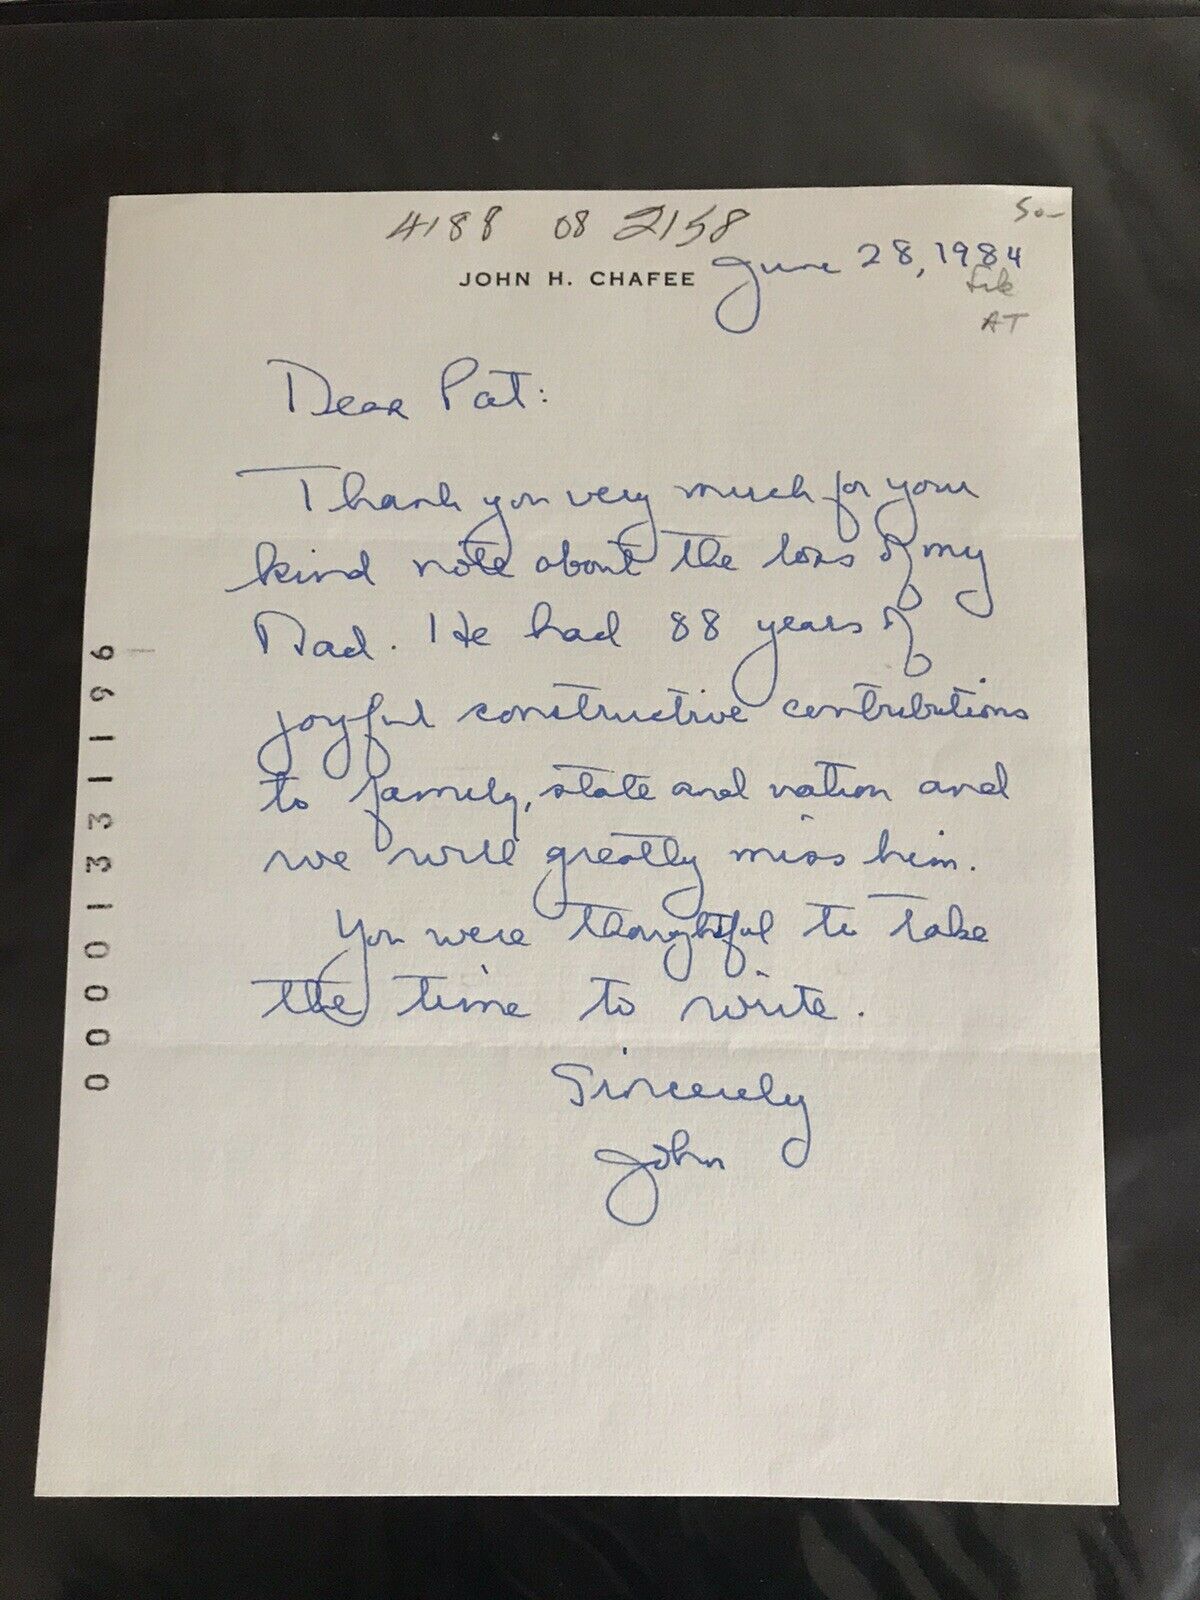 4188 08 2158
50-
JOHN H. CHAFEE
June 28, 1984
file
AT
Dear Pat:
Thank you very much for your
kind note about the loss of my
Dad. He had 88 years of
joyful constructive contributions
to family, state and nation and
we will greatly miss him.
You were thoughtful to take
the time to write.
Sincerely
John
00001331196